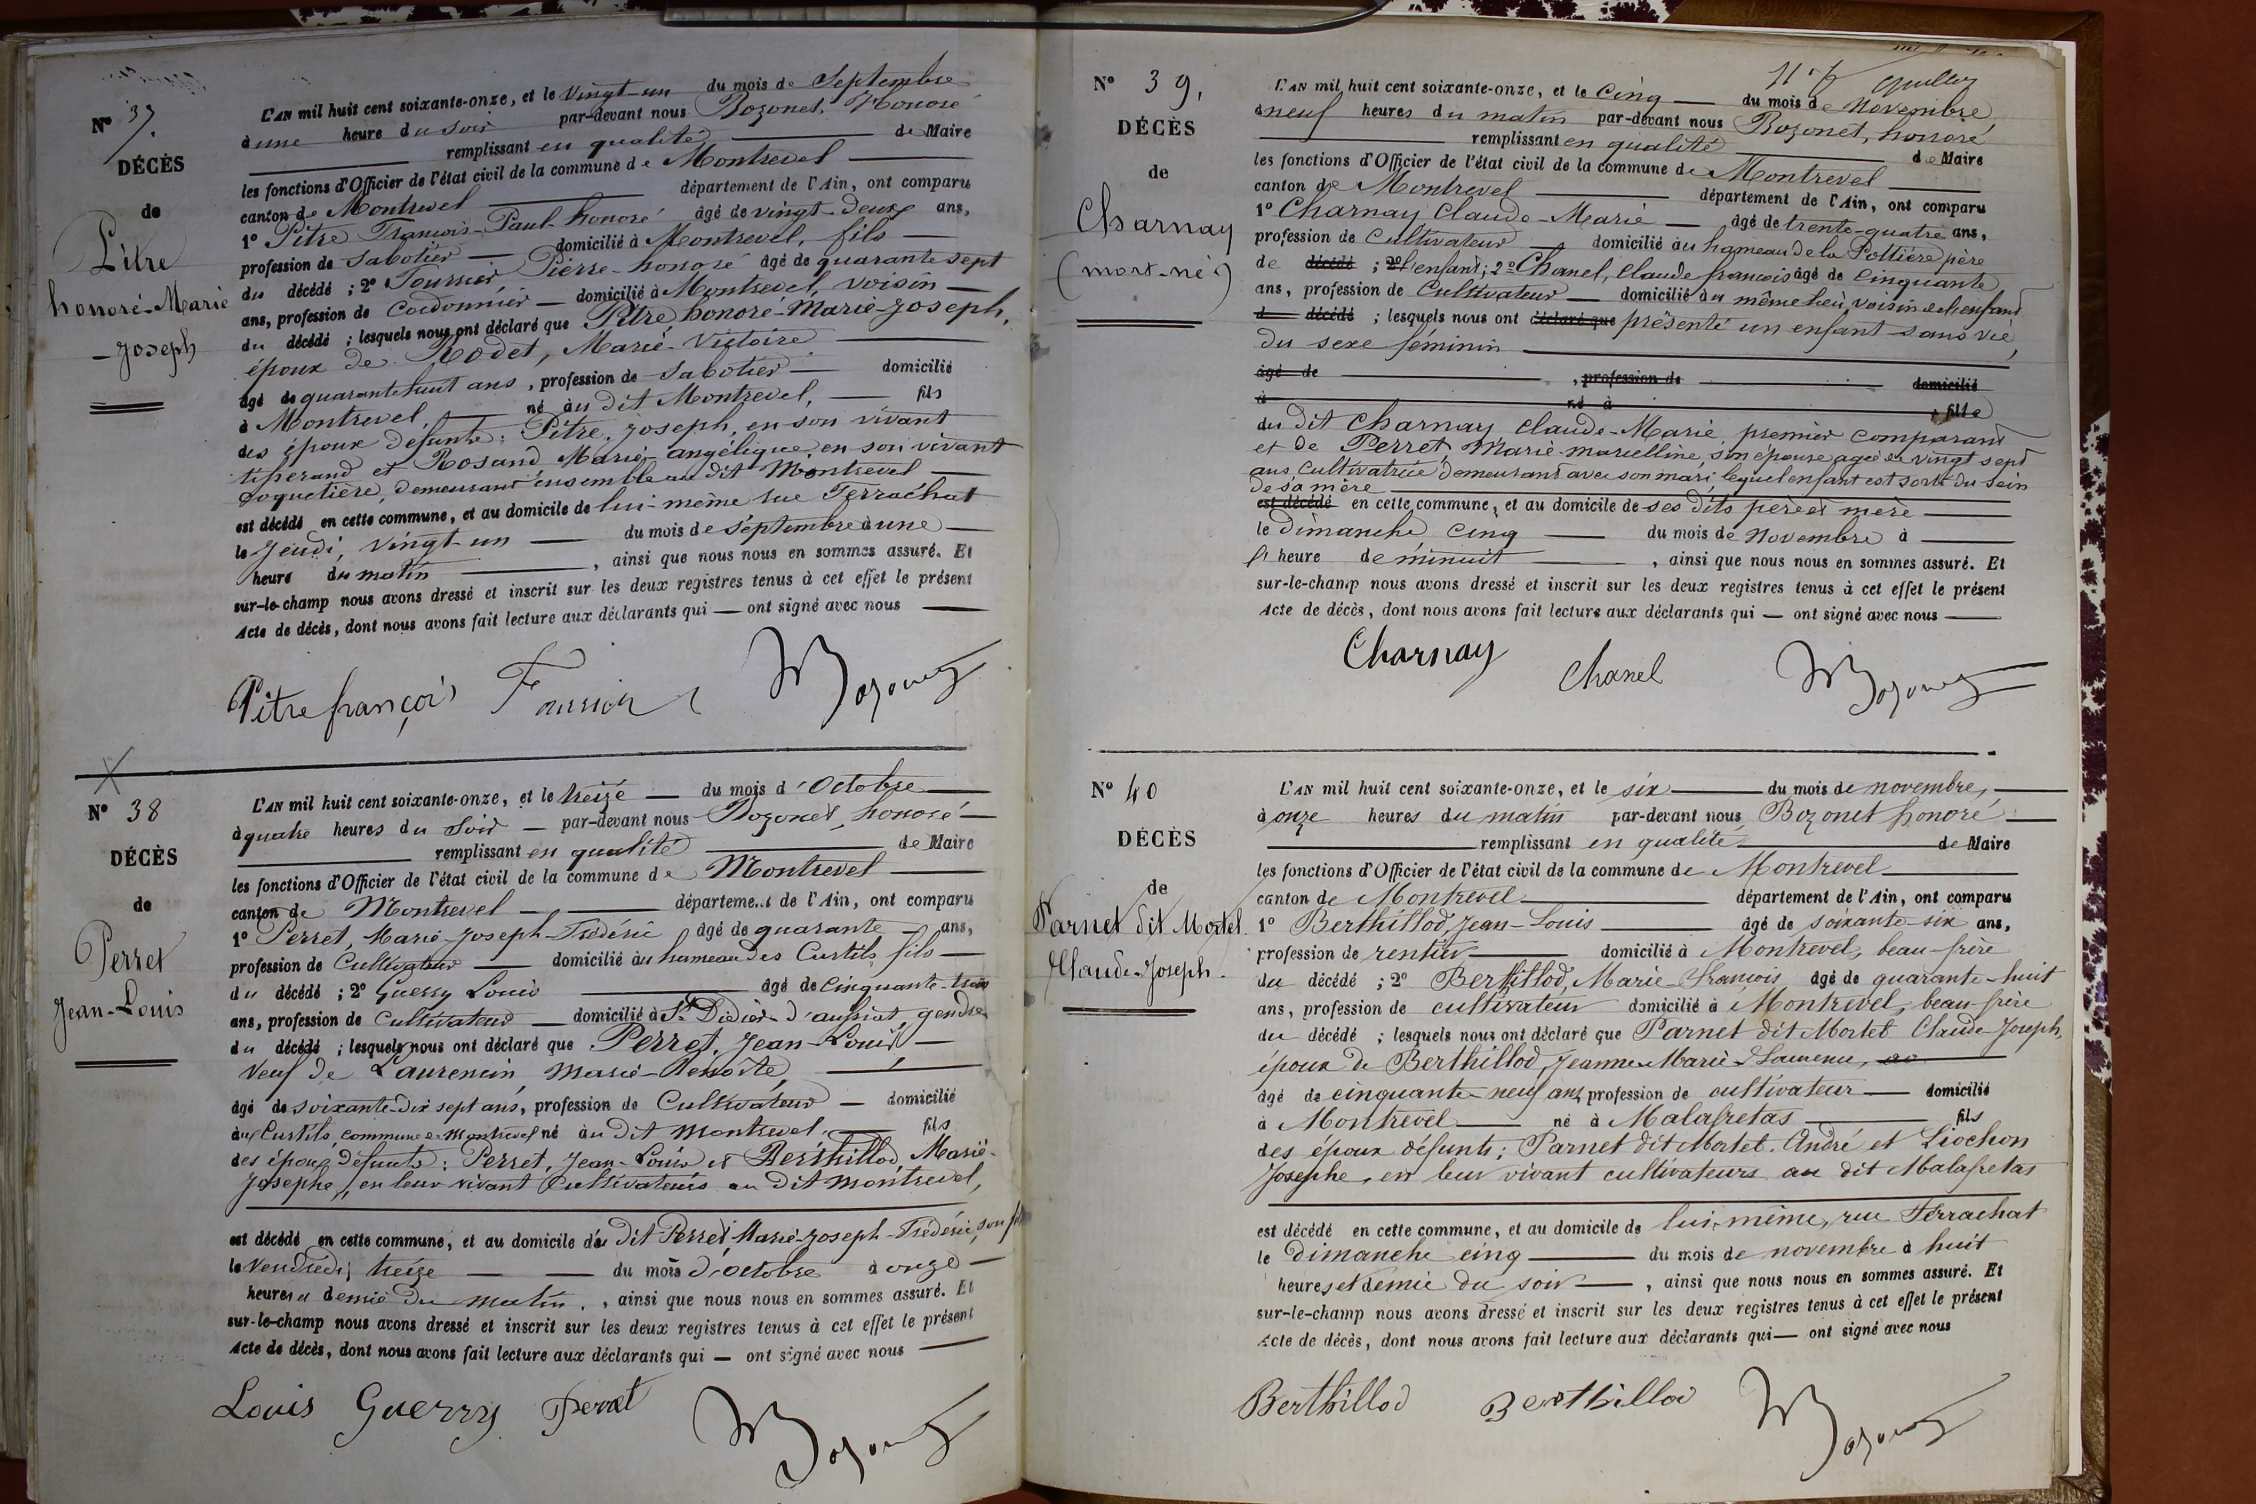 N° 37.
DÉCÈS
de
Pitre
honoré-Marie
-Joseph
L'AN mil huit cent soixante-onze, et le vingt-un du mois de Septembre
à une heure du soir par-devant nous Bozonet, Honoré
remplissant en qualité de Maire
les fonctions d'Officier de l'état civil de la commune de Montrevel
canton de Montrevel département de l'Ain, ont comparu
1° Pitre François-Paul-honoré âgé de vingt-deux ans,
profession de Sabotier domicilié à Montrevel, fils
du décédé ; 2° Fournier Pierre-honoré âgé de quarante sept
ans, profession de Cordonnier domicilié à Montrevel, voisin
du décédé ; lesquels nous ont déclaré que Pitre, honoré-Marie-Joseph,
époux de Rodet, Marie-Victoire
âgé de quarante huit ans, profession de Sabotier domicilié
à Montrevel, né au dit Montrevel, fils
des époux défunts : Pitre, Joseph, en son vivant
tisserand et Rosand Marie-angélique, en son vivant
coquetière, demeurant ensemble au dit Montrevel
est décédé en cette commune, et au domicile de lui-même rue Ferrachat
le Jeudi, vingt-un du mois de Septembre à une
heure du matin, ainsi que nous nous en sommes assuré. Et
sur-le-champ nous avons dressé et inscrit sur les deux registres tenus à cet effet le présent
Acte de décès, dont nous avons fait lecture aux déclarants qui — ont signé avec nous
Pitre françois Bozonet
N° 38
DÉCÈS
de
Perret
Jean-Louis
L'AN mil huit cent soixante-onze, et le treize du mois d'Octobre
à quatre heures du Soir par-devant nous Bozonet, honoré
remplissant en qualité de Maire
les fonctions d'Officier de l'état civil de la commune de Montrevel
canton de Montrevel département de l'Ain, ont comparu
1° Perret, Marie-Joseph-Frédéric âgé de quarante ans,
profession de Cultivateur domicilié au hameau des Curtils, fils
du décédé ; 2° Guerry Louis âgé de Cinquante-trois
ans, profession de Cultivateur domicilié à St Didier-d'aussiat, gendre
du décédé ; lesquels nous ont déclaré que Perret, Jean-Louis
Veuf de Laurencin, Marie-Benoite,
âgé de soixante-dix sept ans, profession de Cultivateur domicilié
aux Curtils, commune de Montrevel né au dit Montrevel, fils
des époux défunts : Perret, Jean-Louis et Berthillod, Marie-
Josephe, en leur vivant Cultivateurs au dit Montrevel,
est décédé en cette commune, et au domicile du dit Perret, Marie-Joseph-Frédéric, son fils
le Vendredi, treize du mois d'Octobre à onze
heures et demie du matin, ainsi que nous nous en sommes assuré. Et
sur-le-champ nous avons dressé et inscrit sur les deux registres tenus à cet effet le présent
Acte de décès, dont nous avons fait lecture aux déclarants qui — ont signé avec nous
Louis Guerry Perret Bozonet
N° 39,
DÉCÈS
de
Charnay
(mort-né)
L'AN mil huit cent soixante-onze, et le cinq du mois de Novembre,
à neuf heures du matin par-devant nous Bozonet, honoré
remplissant en qualité de Maire
les fonctions d'Officier de l'état civil de la commune de Montrevel
canton de Montrevel département de l'Ain, ont comparu
1° Charnay Claude-Marie âgé de trente-quatre ans,
profession de Cultivateur domicilié au hameau de la Pottière père
de décédé ; 2° l'enfant ; 2° Chanel, Claude françois âgé de Cinquante
ans, profession de Cultivateur domicilié au même lieu, voisin de l'enfant
d décédé ; lesquels nous ont déclaré que présenté un enfant sans vie,
du sexe féminin
âgé de , profession de domicilié
à né à fille
du dit Charnay, Claude-Marie, premier comparant
et de Perret, Marie-Marcelline, son épouse agée de vingt sept
ans Cultivatrice demeurant avec son mari, lequel enfant est sorti du sein
de sa mère
est décédé en cette commune, et au domicile de ses dits père et mère
le Dimanche cinq du mois de Novembre à
heure de minuit, ainsi que nous nous en sommes assuré. Et
sur-le-champ nous avons dressé et inscrit sur les deux registres tenus à cet effet le présent
Acte de décès, dont nous avons fait lecture aux déclarants qui — ont signé avec nous
Charnay Chanel Bozonet
N° 40
DÉCÈS
de
Parnet dit Mortet
Claude-Joseph
L'AN mil huit cent soixante-onze, et le six du mois de novembre,
à onze heures du matin par-devant nous Bozonet honoré
remplissant en qualité de Maire
les fonctions d'Officier de l'état civil de la commune de Montrevel
canton de Montrevel département de l'Ain, ont comparu
1° Berthillod, Jean-Louis âgé de soixante-six ans,
profession de rentier domicilié à Montrevel, beau-frère
du décédé ; 2° Berthillod, Marie-françois âgé de quarante-huit
ans, profession de cultivateur domicilié à Montrevel, beau-frère
du décédé ; lesquels nous ont déclaré que Parnet dit Mortet Claude Joseph,
époux de Berthillod, Jeanne-Marie
âgé de cinquante-neuf ans, profession de cultivateur domicilié
à Montrevel né à Malafretas fils
des époux défunts ; Parnet dit Mortet André et Liochon
Josephe, en leur vivant cultivateurs au dit Malafretas
est décédé en cette commune, et au domicile de lui-même, rue Ferrachat
le dimanche cinq du mois de novembre à huit
heures et demie du soir, ainsi que nous nous en sommes assuré. Et
sur-le-champ nous avons dressé et inscrit sur les deux registres tenus à cet effet le présent
Acte de décès, dont nous avons fait lecture aux déclarants qui — ont signé avec nous
Berthillod Berthillod Bozonet